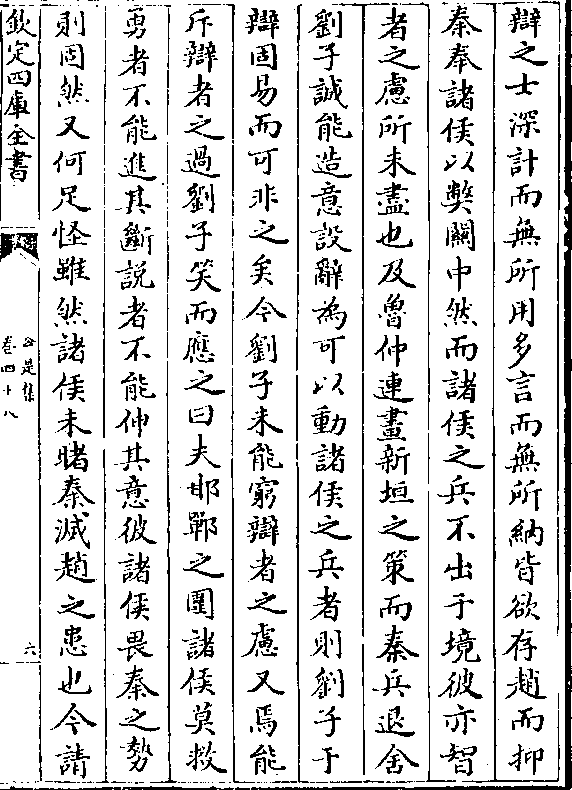 辯之士深計而無所用多言而無所納皆欲存趙而抑
秦奉諸侯以獘關中然而諸侯之兵不出于境彼亦智
者之慮所未盡也及魯仲連畫新垣之策而秦兵退舍
劉子誠能造意設辭為可以動諸侯之兵者則劉子于
辯固易而可非之矣今劉子未能窮辯者之慮又焉能
斥辯者之過劉子笑而應之曰夫邯鄲之圍諸侯莫救
勇者不能進其斷説者不能伸其意彼諸侯畏秦之勢
則固然又何足怪雖然諸侯未睹秦滅趙之患也今請
欽定四庫全書
公是集
卷四十八
六